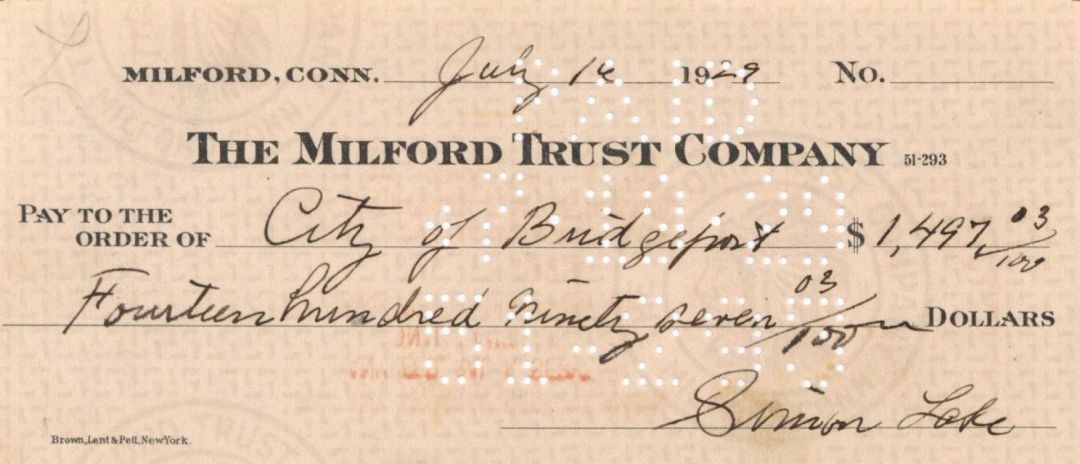 MILFORD, CONN. July 16 1929 No.
THE MILFORD TRUST COMPANY 51-293
PAY TO THE ORDER OF City of Bridgeport $ 1,497 03/100
Fourteen hundred ninety seven 03/100 DOLLARS
Simon Lake
Brown, Lent & Pett, New York.
PAID
51-293